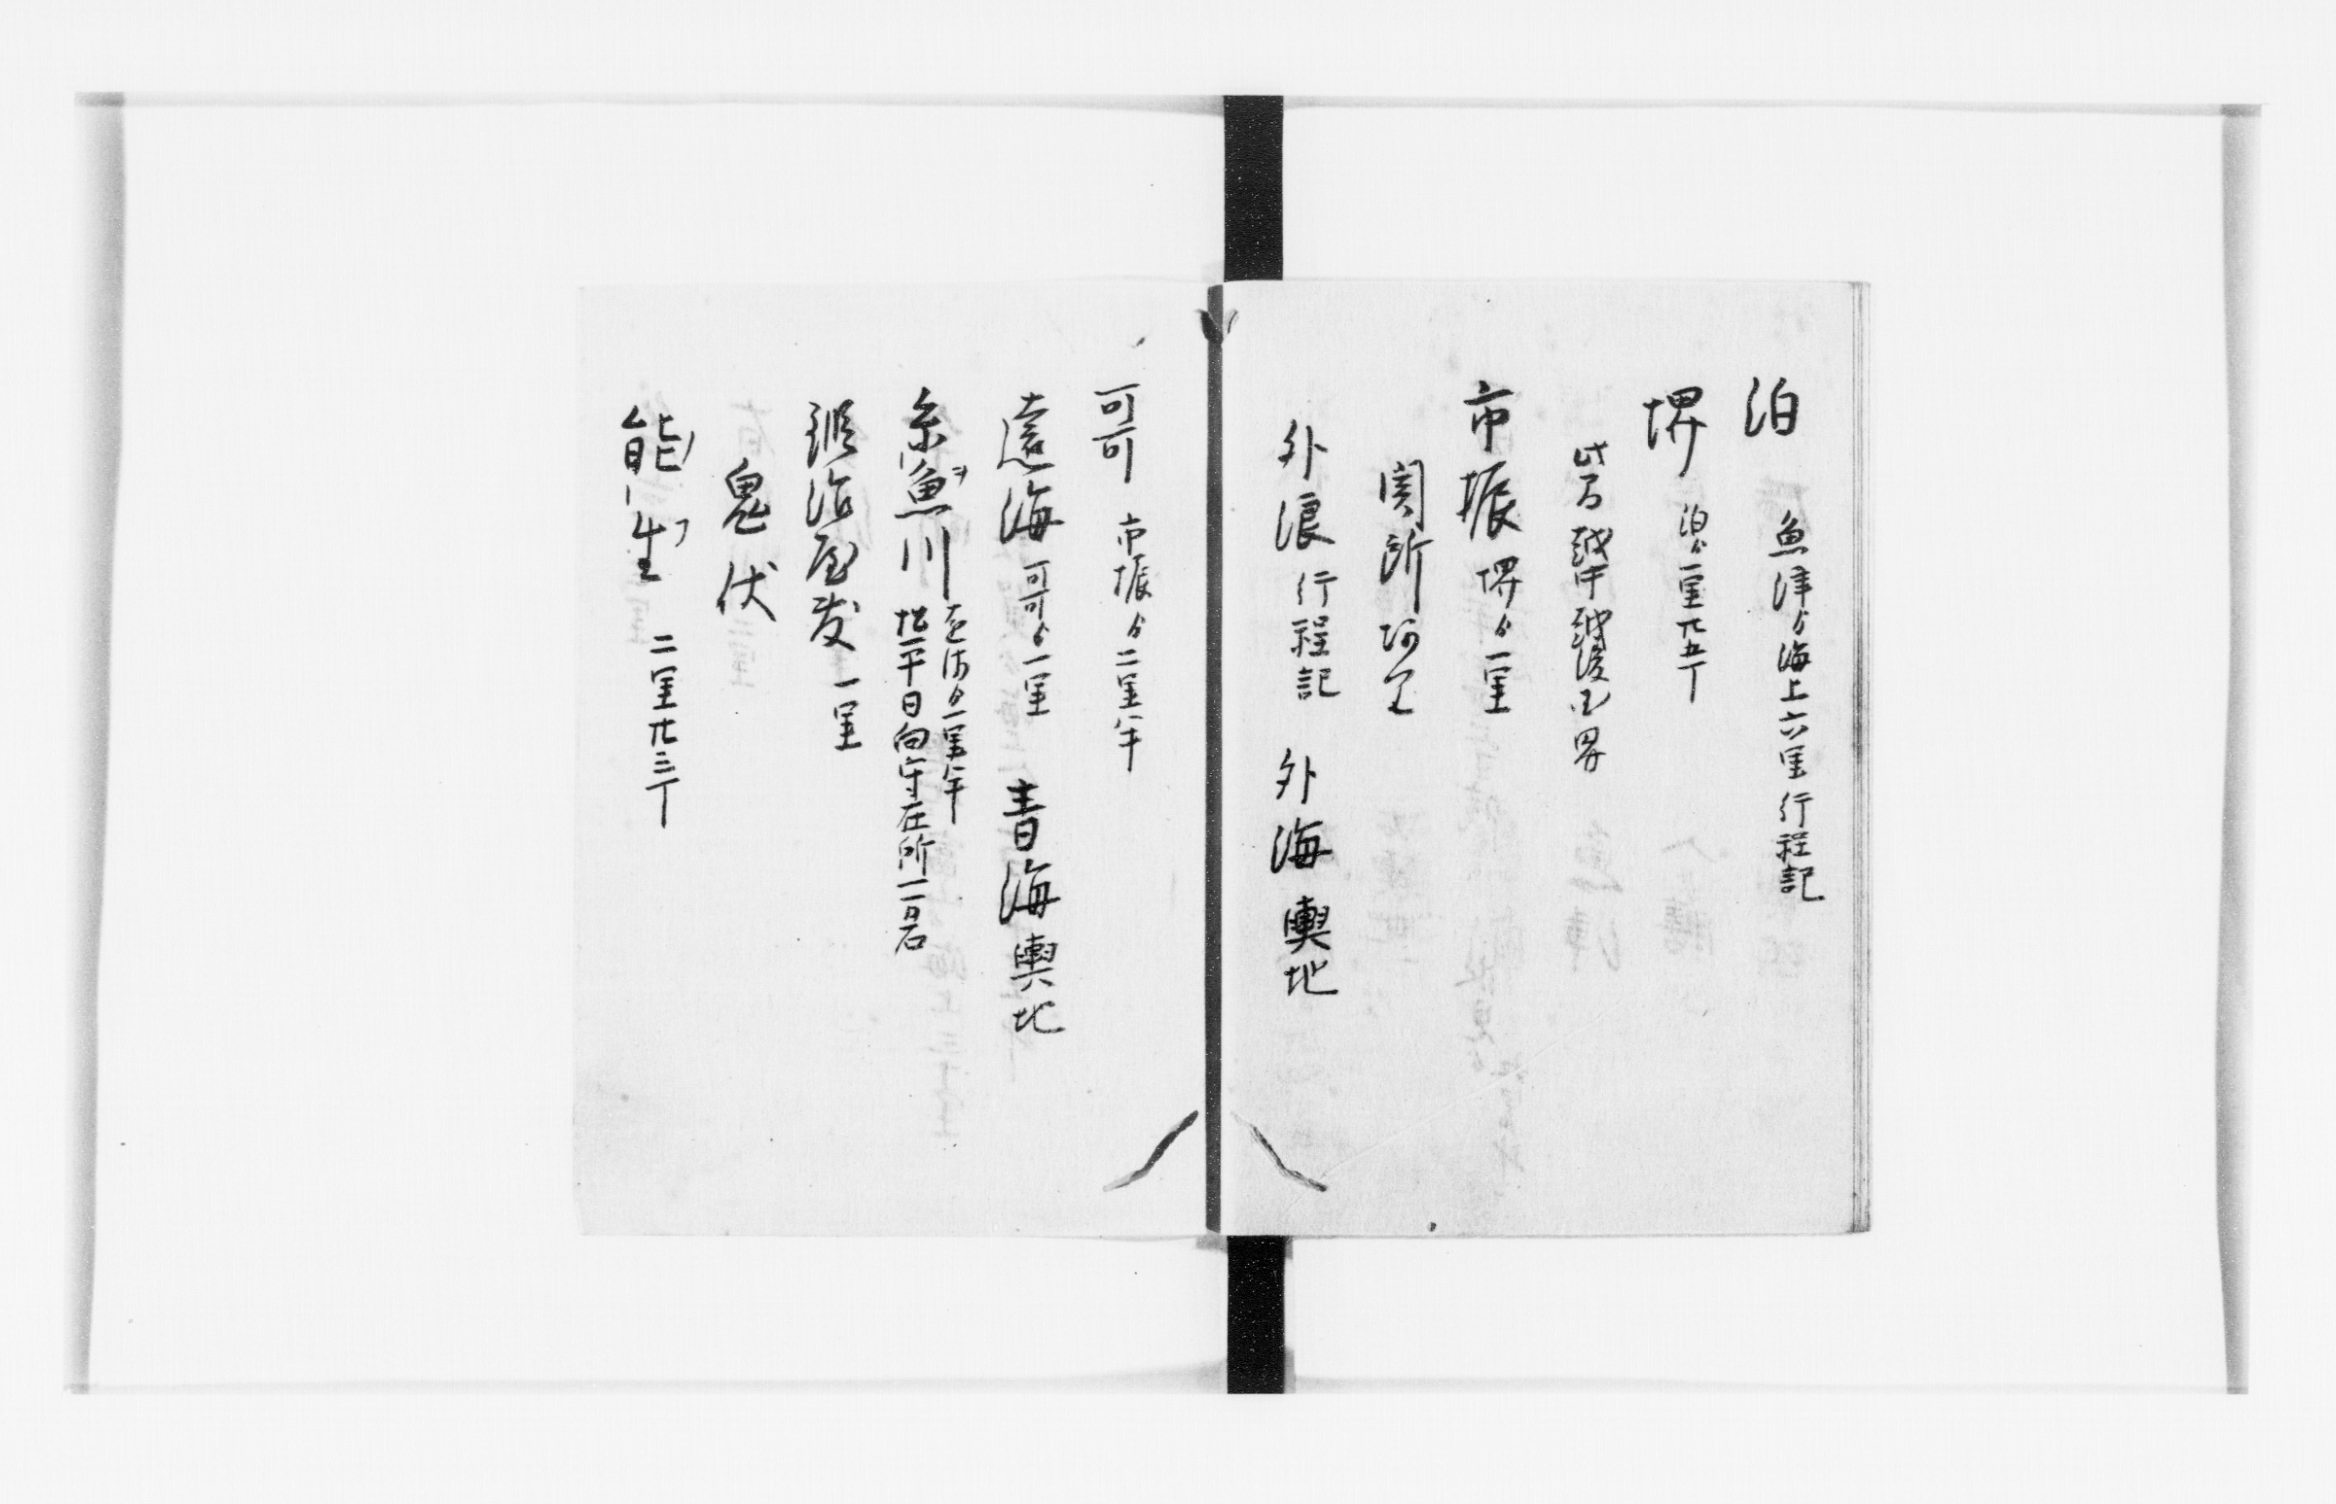 泊 魚津ゟ海上六里 行程記
堺 泊ゟ一里廿五丁
此間越中越後国界
市振 堺ゟ一里
関所
外浪 行程記 外海 輿地
哥 市振ゟ二里半
遠海 哥ゟ一里 青海 輿地
糸魚川 一里半
松平日向守在所 一万石
鍛冶屋敷 一里
鬼伏
能生 二里廿三丁